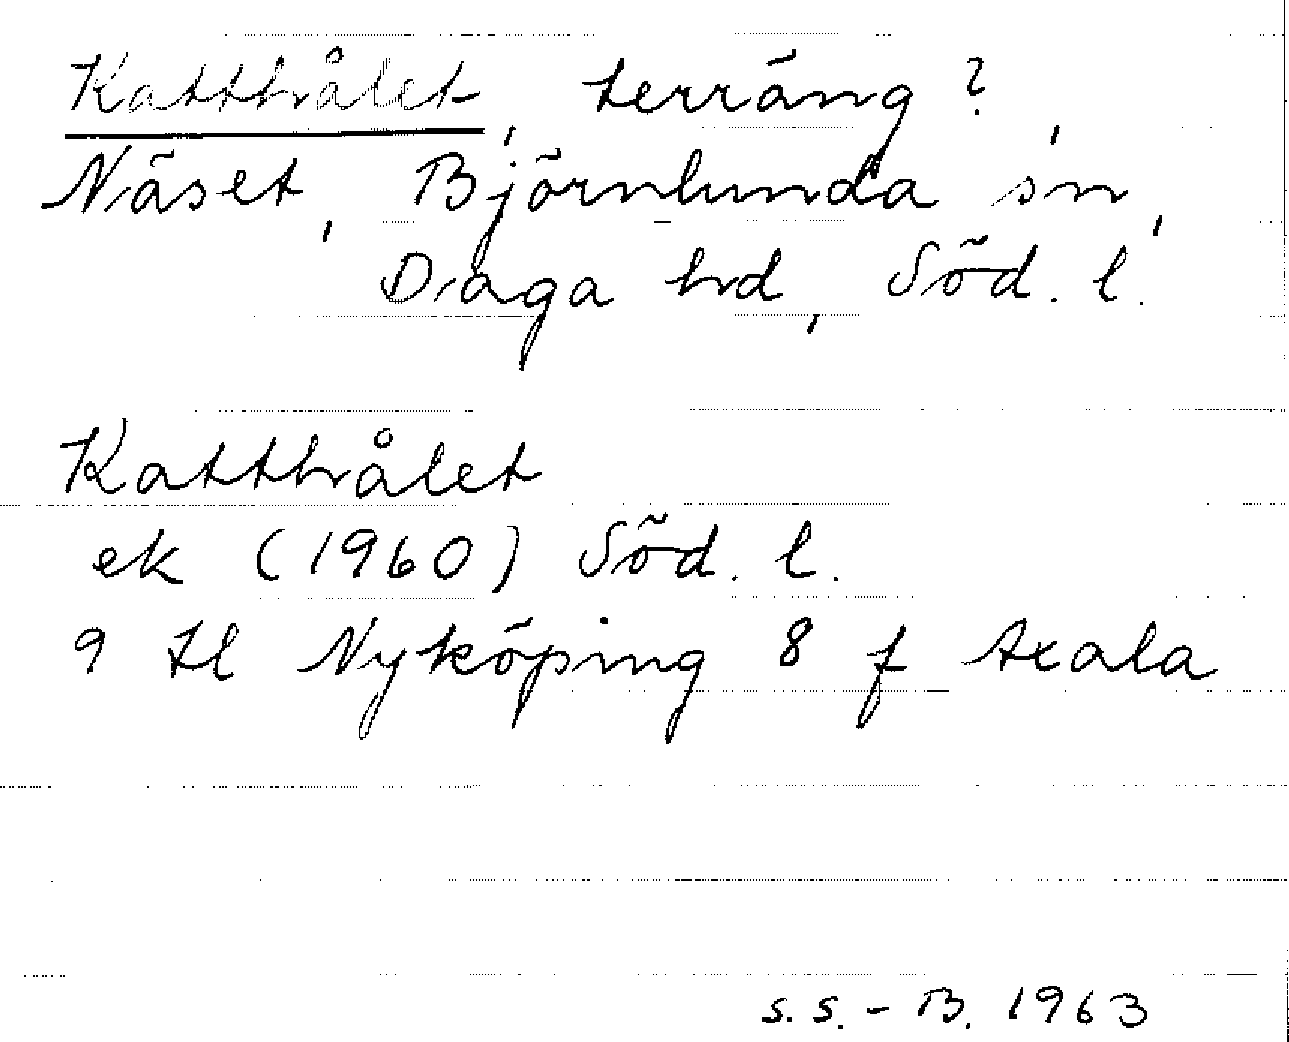 Katthålet, terräng?,
Näset, Björnlunda sn,
Daga hd, Söd. l.
Katthålet
ek (1960) Söd. l.
9 H l Nyköping 8 f Axala
S.S.-B. 1963